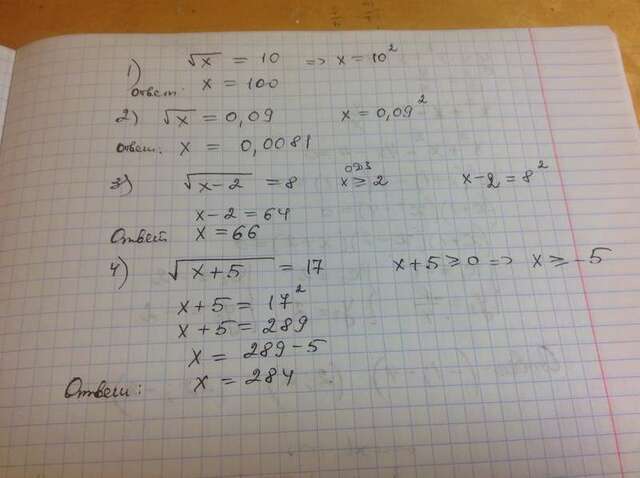 1) √x = 10 => x = 10²
Ответ: x = 100
2) √x = 0,09 x = 0,09²
ответ: x = 0,0081
3) √x-2 = 8 ОДЗ x ≥ 2 x-2 = 8²
x-2 = 64
Ответ x = 66
4) √x+5 = 17 x+5 ≥ 0 => x ≥ -5
x+5 = 17²
x+5 = 289
x = 289-5
Ответ: x = 284